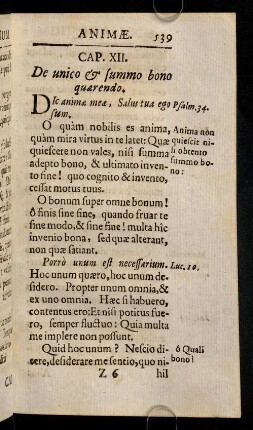 ANIMÆ. 539
CAP. XII.
De unico & summo bono
quærendo.
Dic animæ meæ, Salus tua ego Psalm. 34.
sum.
O quàm nobilis es anima, Anima non
quàm mira virtus in te latet: Quæ quiescit ni-
quiescere non vales, nisi summo si obtento
adepto bono, & ultimato inven- summo bo-
to fine! quo cognito & invento, no:
cessat motus tuus.
O bonum super omne bonum!
ô finis sine fine, quando fruar te
sine modo, & sine fine! multa hîc
invenio bona, sed quæ alterant,
non quæ satiant.
Porrò unum est necessarium. Luc. 10.
Hoc unum quæro, hoc unum de-
sidero. Propter unum omnia, &
ex uno omnia. Hæc si habuero,
contentus ero: Et nisi potitus fue-
ro, semper fluctuo: Quia multa
me implere non possunt.
Quid hoc unum? Nescio di- ô Quali
cere, desiderare me sentio, quo ni- bono!
Z 6 hil